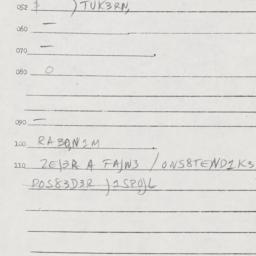 052 $ )TUK3RN,
060 —
070 —
080 O
090 —
100 RA3QN1M
110 2E)3R A FA)N3 / ONS8TEND1K3
DOS83D3R )1SPO)L